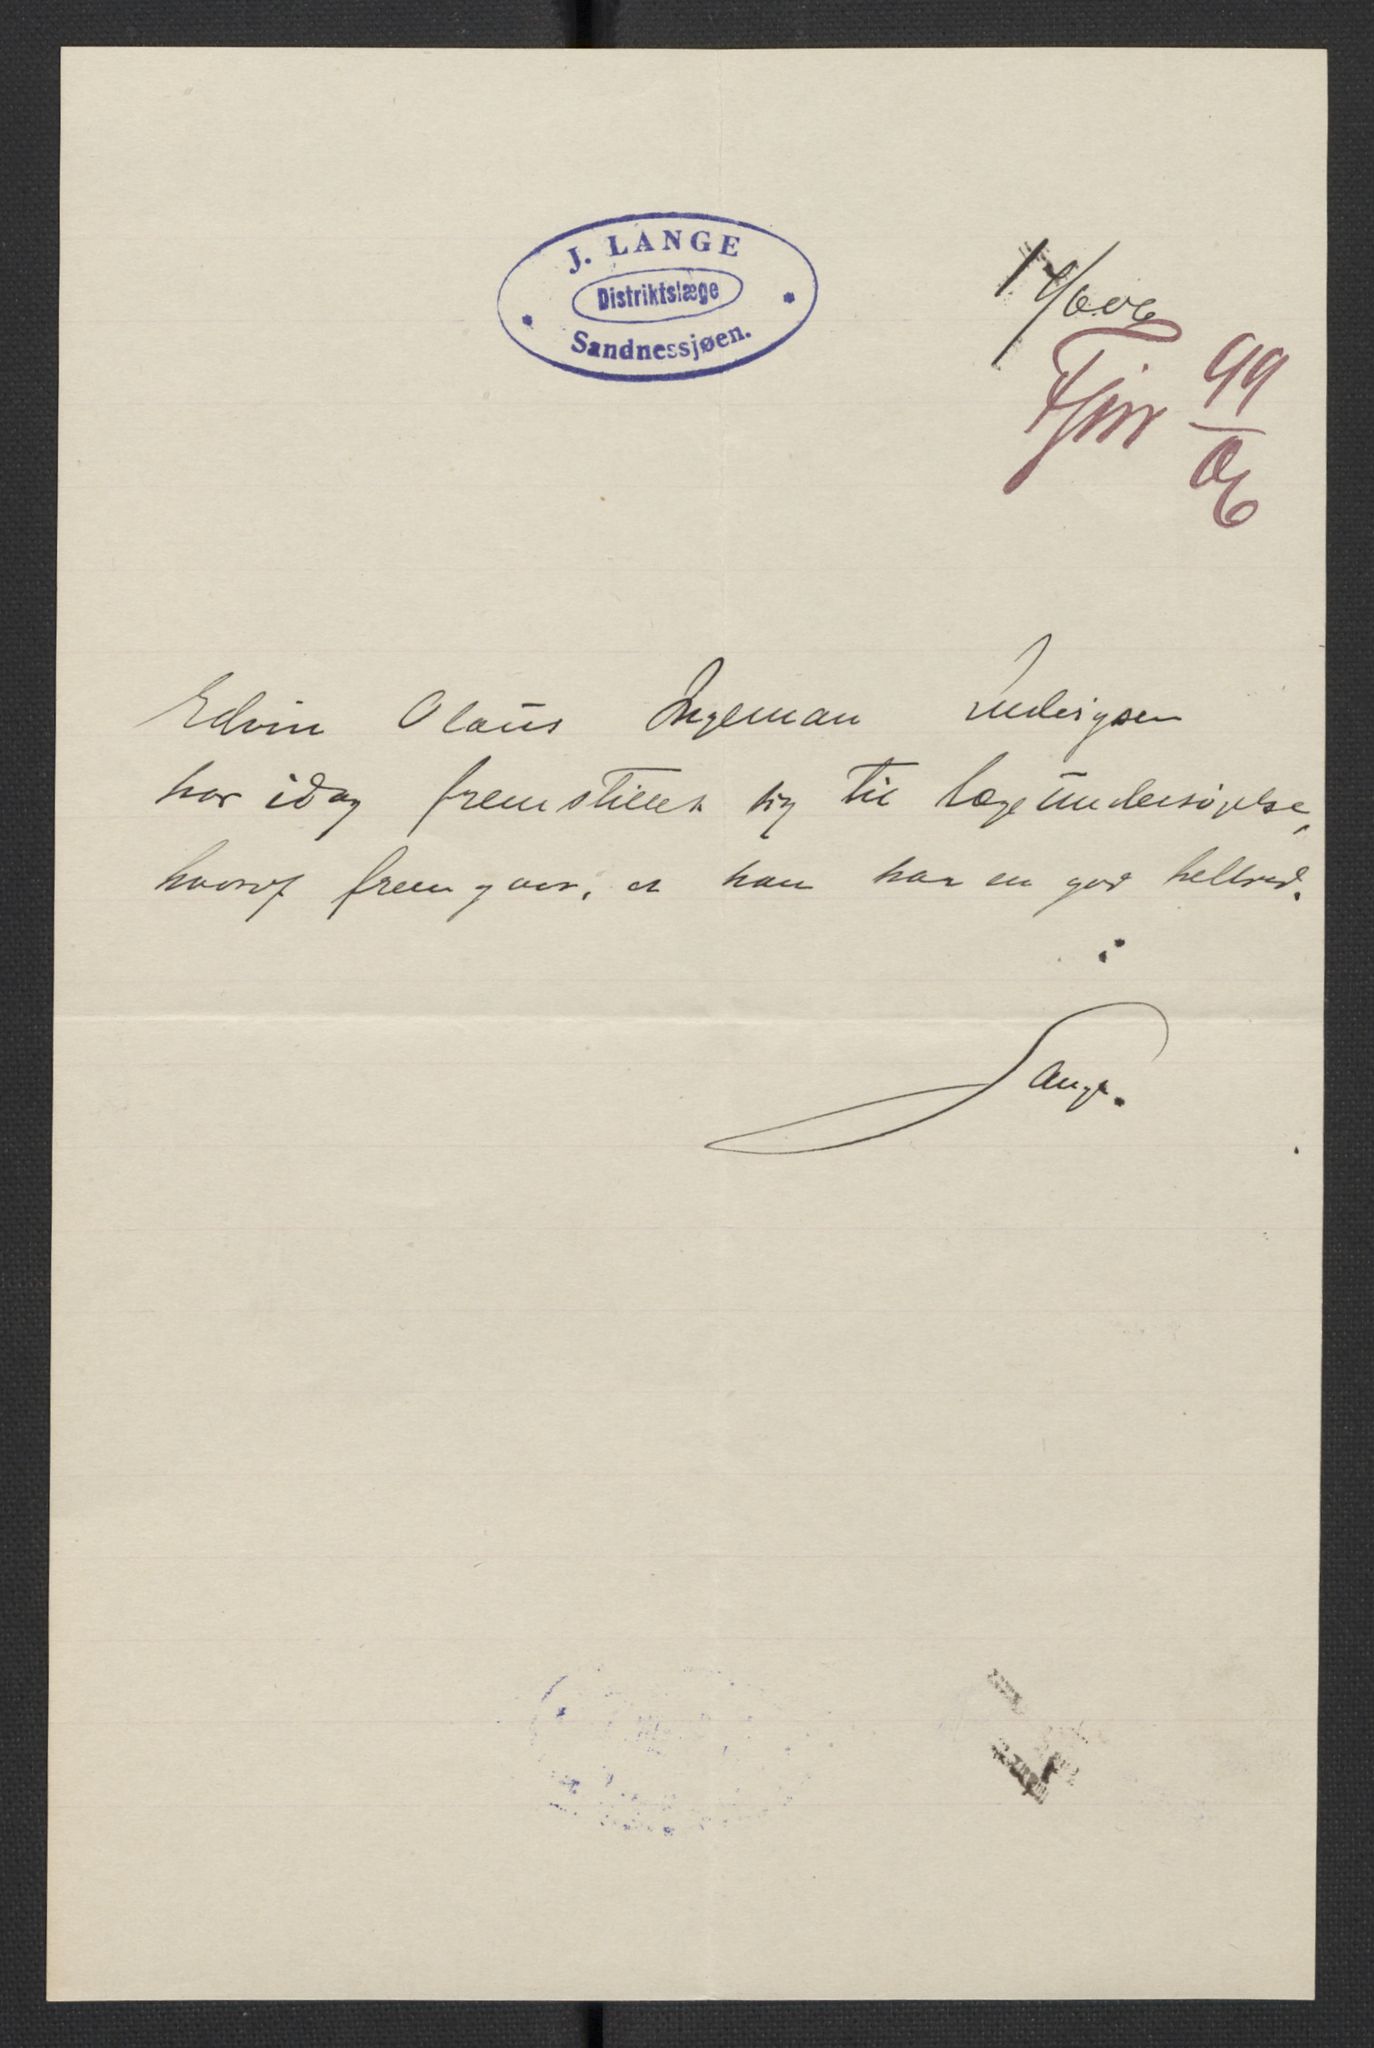 J. LANGE
Distriktslæge
Sandnessjøen.
Fjvr 99
06
Edvin Olaus Ingeman Ludvigsen
har idag fremstillet sig til lægeundersøgelse,
hvoraf fremgaar, at han har en god helbred.
Lange.